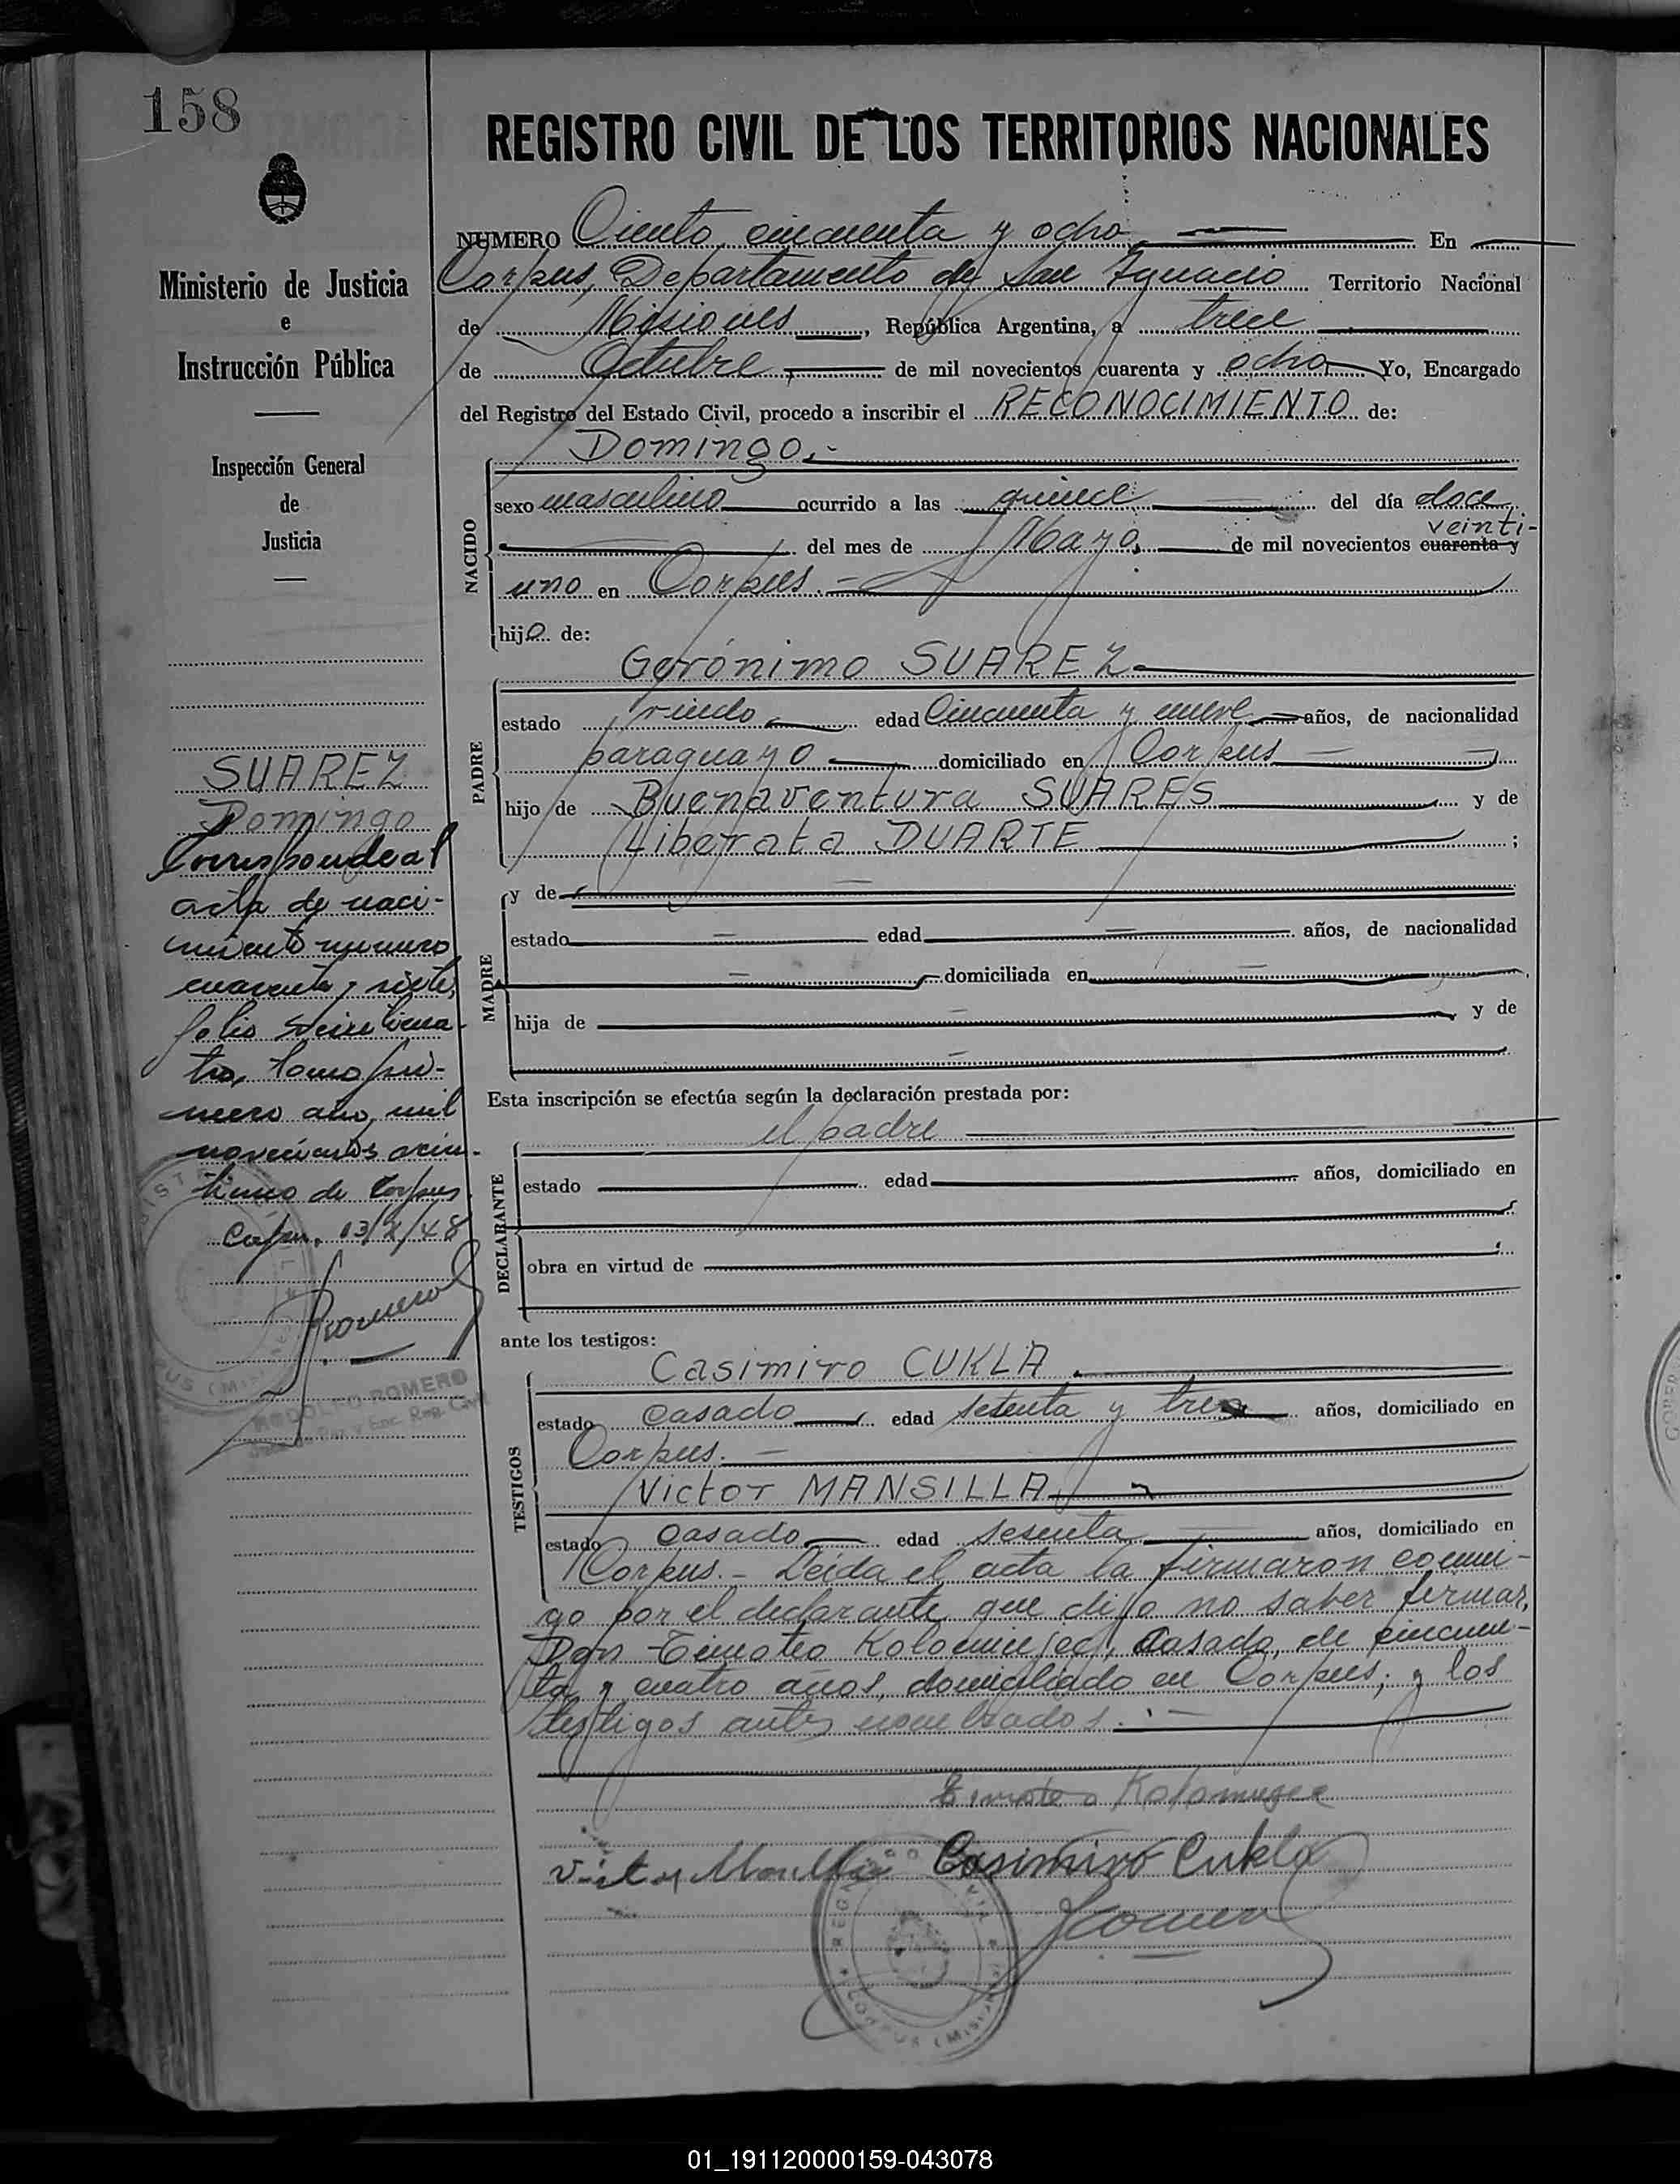 158
REGISTRO CIVIL DE LOS TERRITORIOS NACIONALES
Ministerio de Justicia
e
Instrucción Pública
Inspección General
de
Justicia
NUMERO Ciento cincuenta y ocho En
Corpus, Departamento de San Ygnacio Territorio Nacional
de Misiones, República Argentina, a trece
de Octubre, de mil novecientos cuarenta y ocho Yo, Encargado
del Registro del Estado Civil, procedo a inscribir el RECONOCIMIENTO de:
Domingo.-
NACIDO
sexo masculino ocurrido a las quince del día doce
del mes de Mayo, de mil novecientos cuarenta y veinti-
uno en Corpus.-
hijo de:
PADRE
Gerónimo SUAREZ
estado viudo edad Cincuenta y nueve años, de nacionalidad
paraguayo domiciliado en Corpus
hijo de Buenaventura SUARES y de
Liberata DUARTE ;
MADRE
y de
estado edad años, de nacionalidad
domiciliada en
hija de y de
Esta inscripción se efectúa según la declaración prestada por:
DECLARANTE
el padre
estado edad años, domiciliado en
obra en virtud de
ante los testigos:
TESTIGOS
Casimiro CUKLA
estado casado edad setenta y tres años, domiciliado en
Corpus.-
Victor MANSILLA
estado casado edad sesenta años, domiciliado en
Corpus.- Leida el acta la firmaron conmi-
go por el declarante que dijo no saber firmar,
Don Timoteo casado, de cincuen-
ta y cuatro años, domiciliado en Corpus; y los
testigos antes nombrados.-
Casimiro Cukla
Romero
SUAREZ
Domingo
Corresponde al
acta de naci-
miento numero
cuarenta y siete,
folio
tro, tomo pri-
mero año mil
novecientos vein-
tiuno de Corpus
Romero
RODOLFO ROMERO
Juez de Paz y Enc. Reg. Civil
CORPUS (MISIONES)
01_191120000159-043078